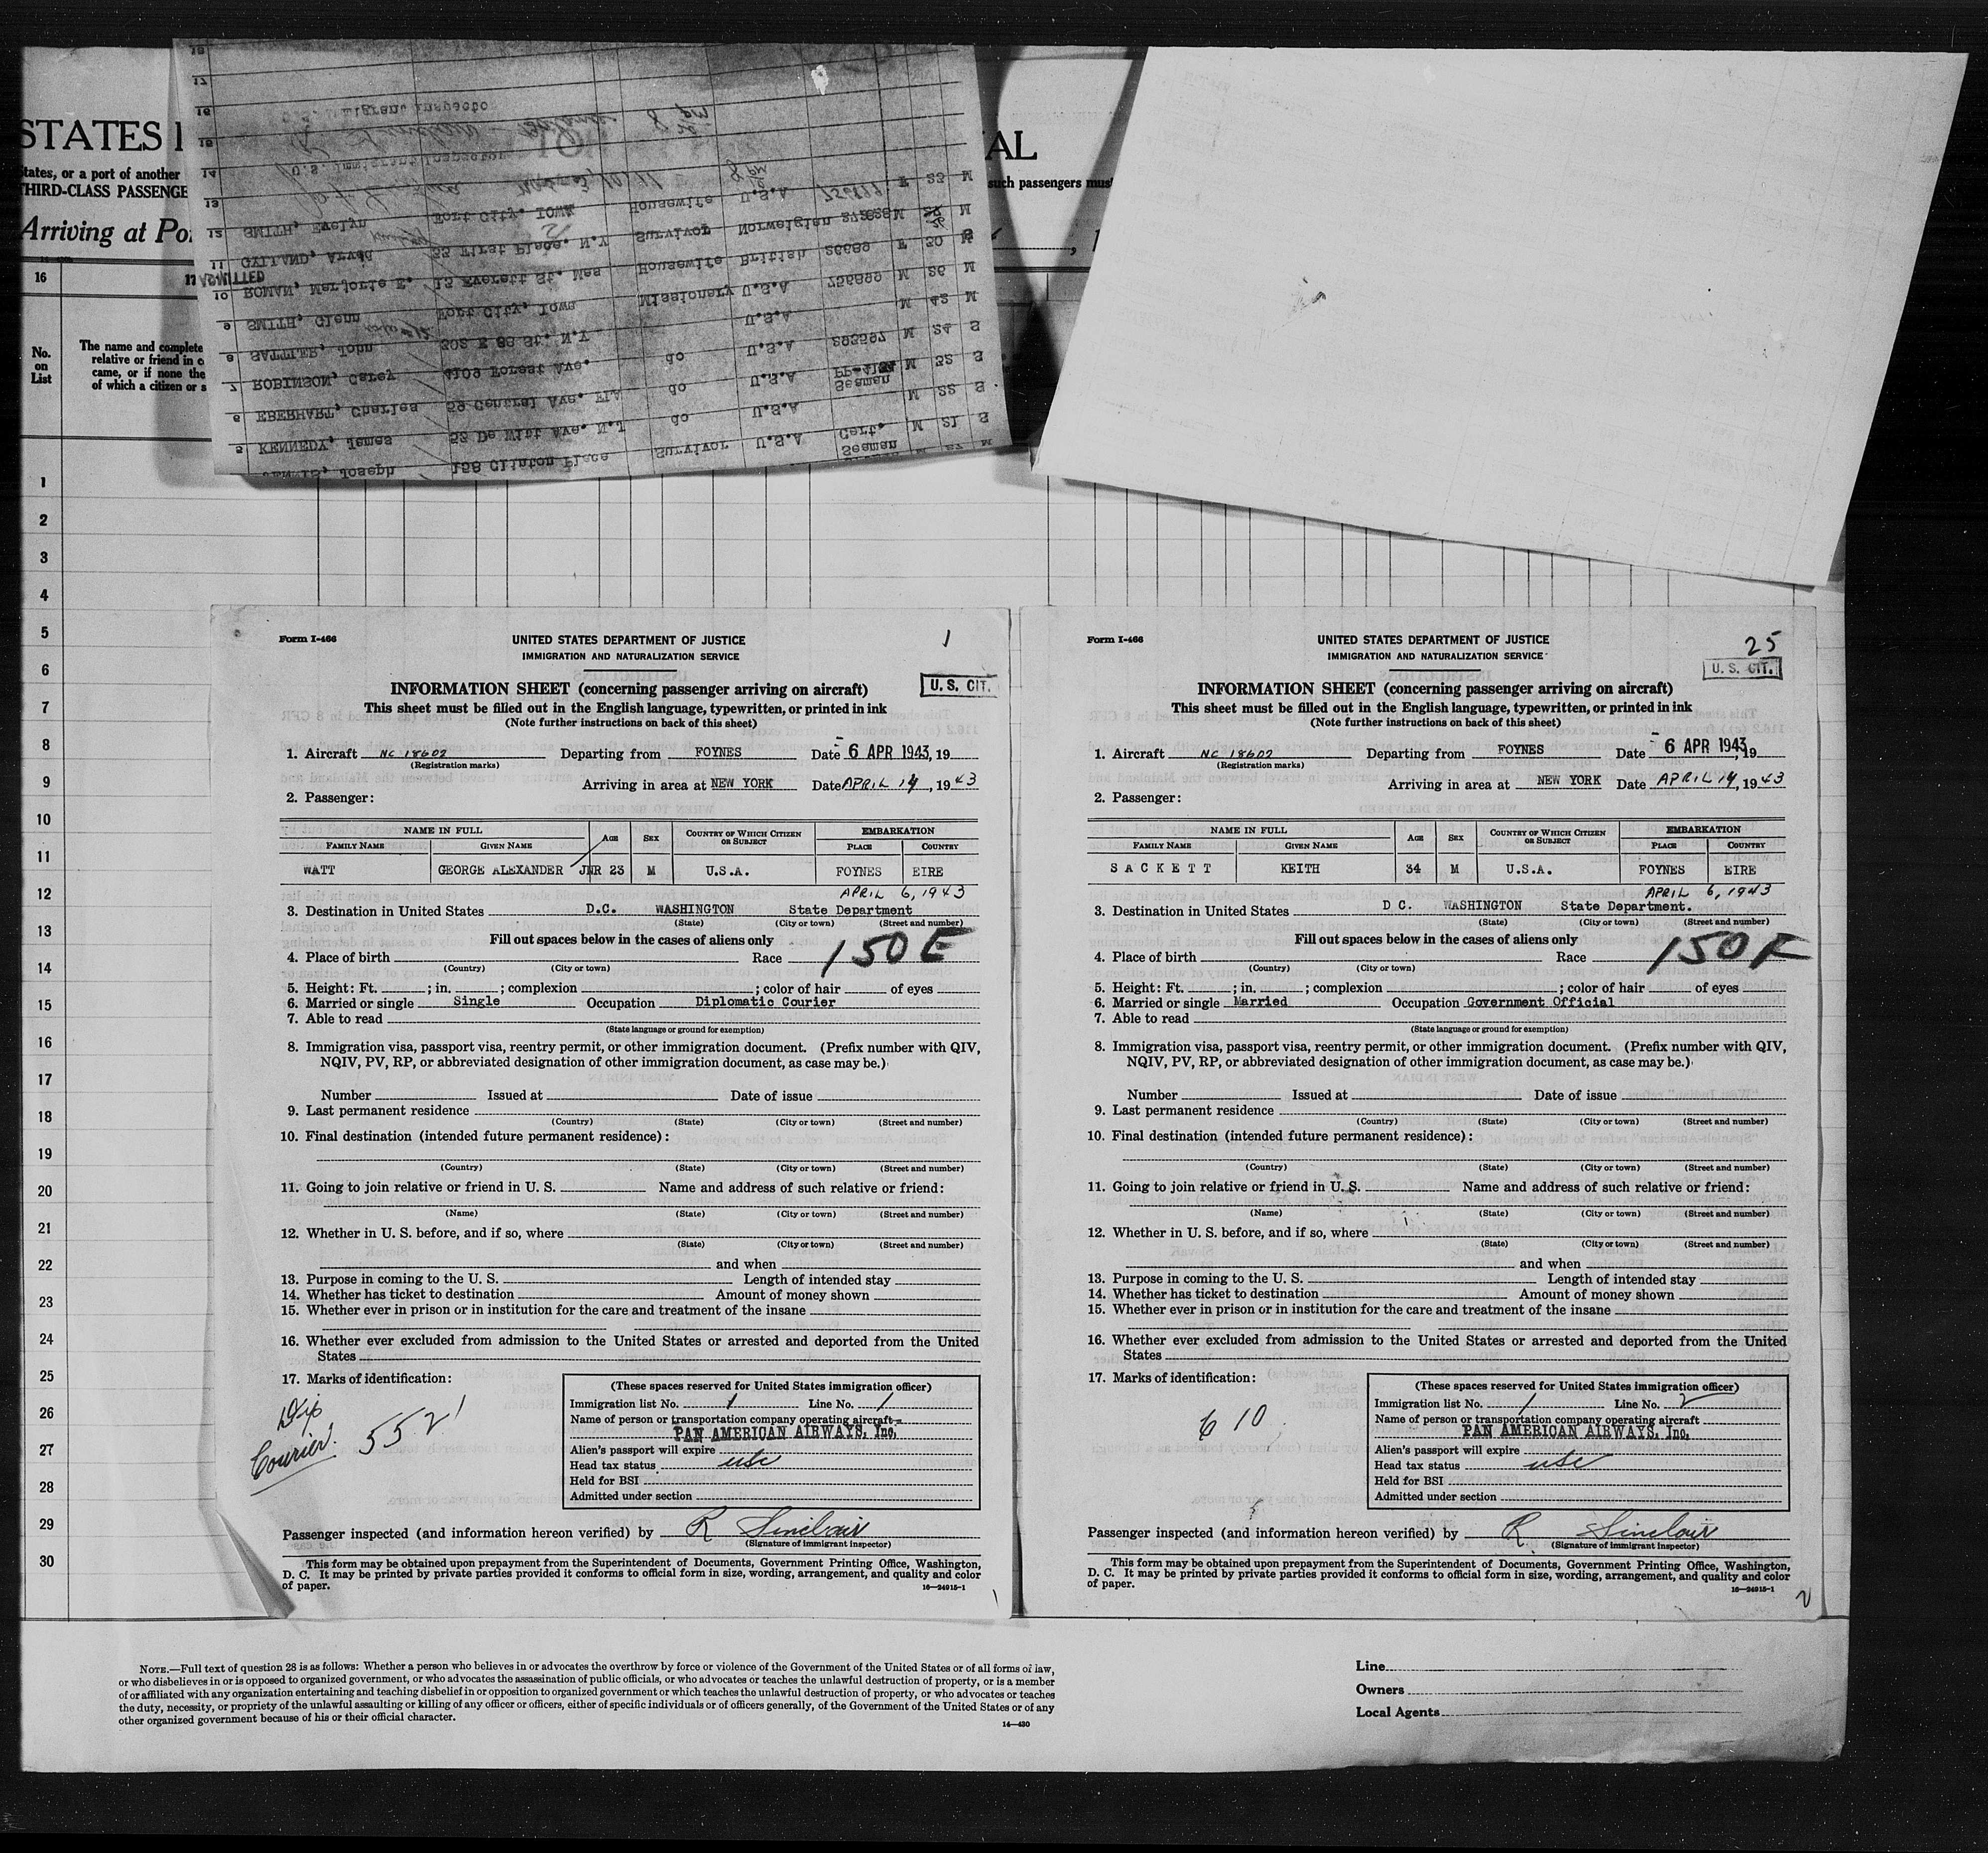 STATES
AL
States, or a port of another
such passengers must
THIRD-CLASS PASSENGE
Arriving at Po
16
17
No.
on
List
The name and complete
relative or friend in c
came, or if none the
of which a citizen or s
18
17
16
U.S. Immigrant Inspector
15
14
U.S. Immigrant Inspector
13
12 SMITH, Evelyn Fort City, IOWA Housewife U.S.A F 23 M
11 GYLLAND, Arvid 55 First Place, N.Y Survivor Norwegian M M
ADMITTED
10 ROMAN, Marjorie E. 15 Everett St. Mas Housewife British 26689 F 30
9 SMITH, Glenn Fort City, Iowa Missionary U.S.A 756899 M 26 M
8 SATTLER, John 302 E 88 St. N.Y U.S.A M 42 M
7 ROBINSON, Carey 4109 Forest Ave. do U.S.A M 24 S
6 EBERHART, Charles 59 Central Ave. FLA do U.S.A Seaman M 32 S
5 KENNEDY, James 52 De Witt Ave. N.J do U.S.A M 22 S
Joseph 158 Clinton Place Survivor U.S.A Seaman Cert. M 21 S
1
2
3
4
5
6
7
8
9
10
11
12
13
14
15
16
17
18
19
20
21
22
23
24
25
26
27
28
29
30
Form I-466
1
UNITED STATES DEPARTMENT OF JUSTICE
IMMIGRATION AND NATURALIZATION SERVICE
U. S. CIT.
INFORMATION SHEET (concerning passenger arriving on aircraft)
This sheet must be filled out in the English language, typewritten, or printed in ink
(Note further instructions on back of this sheet)
1. Aircraft NC 18602 Departing from FOYNES Date - 6 APR 1943, 19
(Registration marks)
Arriving in area at NEW YORK Date APRIL 14, 1943
2. Passenger:
NAME IN FULL AGE SEX COUNTRY OF WHICH CITIZEN OR SUBJECT EMBARKATION
FAMILY NAME GIVEN NAME PLACE COUNTRY
WATT GEORGE ALEXANDER JNR 23 M U.S.A. FOYNES EIRE
APRIL 6, 1943
3. Destination in United States D.C. WASHINGTON State Department
(State) (Street and number)
Fill out spaces below in the cases of aliens only
4. Place of birth Race 150 E
(Country) (City or town)
5. Height: Ft. ; in. ; complexion ; color of hair of eyes
6. Married or single Single Occupation Diplomatic Courier
7. Able to read
(State language or ground for exemption)
8. Immigration visa, passport visa, reentry permit, or other immigration document. (Prefix number with QIV,
NQIV, PV, RP, or abbreviated designation of other immigration document, as case may be.)
Number Issued at Date of issue
9. Last permanent residence
(Country) (State) (City or town) (Street and number)
10. Final destination (intended future permanent residence):
(Country) (State) (City or town) (Street and number)
11. Going to join relative or friend in U. S. Name and address of such relative or friend:
(Name) (State) (City or town) (Street and number)
12. Whether in U. S. before, and if so, where
(State) (City or town) (Street and number)
and when
13. Purpose in coming to the U. S. Length of intended stay
14. Whether has ticket to destination Amount of money shown
15. Whether ever in prison or in institution for the care and treatment of the insane
16. Whether ever excluded from admission to the United States or arrested and deported from the United
States
17. Marks of identification:
Dip
Courier. 552
(These spaces reserved for United States immigration officer)
Immigration list No. 1 Line No. 1
Name of person or transportation company operating aircraft
PAN AMERICAN AIRWAYS, Inc.
Alien's passport will expire
Head tax status usc
Held for BSI
Admitted under section
Passenger inspected (and information hereon verified) by R Sinclair
(Signature of immigrant inspector)
This form may be obtained upon prepayment from the Superintendent of Documents, Government Printing Office, Washington,
D. C. It may be printed by private parties provided it conforms to official form in size, wording, arrangement, and quality and color
of paper. 16—24915-1
Form I-466
25
UNITED STATES DEPARTMENT OF JUSTICE
IMMIGRATION AND NATURALIZATION SERVICE
U. S. CIT.
INFORMATION SHEET (concerning passenger arriving on aircraft)
This sheet must be filled out in the English language, typewritten, or printed in ink
(Note further instructions on back of this sheet)
1. Aircraft NC 18602 Departing from FOYNES Date - 6 APR 1943, 19
(Registration marks)
Arriving in area at NEW YORK Date APRIL 14, 1943
2. Passenger:
NAME IN FULL AGE SEX COUNTRY OF WHICH CITIZEN OR SUBJECT EMBARKATION
FAMILY NAME GIVEN NAME PLACE COUNTRY
SACKETT KEITH 34 M U.S.A. FOYNES EIRE
APRIL 6, 1943
3. Destination in United States D C. WASHINGTON State Department.
(State) (City or town) (Street and number)
Fill out spaces below in the cases of aliens only
4. Place of birth Race 150 F
(Country) (City or town)
5. Height: Ft. ; in. ; complexion ; color of hair of eyes
6. Married or single Married Occupation Government Official
7. Able to read
(State language or ground for exemption)
8. Immigration visa, passport visa, reentry permit, or other immigration document. (Prefix number with QIV,
NQIV, PV, RP, or abbreviated designation of other immigration document, as case may be.)
Number Issued at Date of issue
9. Last permanent residence
(Country) (State) (City or town) (Street and number)
10. Final destination (intended future permanent residence):
(Country) (State) (City or town) (Street and number)
11. Going to join relative or friend in U. S. Name and address of such relative or friend:
(Name) (State) (City or town) (Street and number)
12. Whether in U. S. before, and if so, where
(State) (City or town) (Street and number)
and when
13. Purpose in coming to the U. S. Length of intended stay
14. Whether has ticket to destination Amount of money shown
15. Whether ever in prison or in institution for the care and treatment of the insane
16. Whether ever excluded from admission to the United States or arrested and deported from the United
States
17. Marks of identification:
610
(These spaces reserved for United States immigration officer)
Immigration list No. 1 Line No. 2
Name of person or transportation company operating aircraft
PAN AMERICAN AIRWAYS, Inc.
Alien's passport will expire
Head tax status usc
Held for BSI
Admitted under section
Passenger inspected (and information hereon verified) by R. Sinclair
(Signature of immigrant inspector)
This form may be obtained upon prepayment from the Superintendent of Documents, Government Printing Office, Washington,
D. C. It may be printed by private parties provided it conforms to official form in size, wording, arrangement, and quality and color
of paper. 16—24915-1
2
NOTE.—Full text of question 28 is as follows: Whether a person who believes in or advocates the overthrow by force or violence of the Government of the United States or of all forms of law,
or who disbelieves in or is opposed to organized government, or who advocates the assassination of public officials, or who advocates or teaches the unlawful destruction of property, or is a member
of or affiliated with any organization entertaining and teaching disbelief in or opposition to organized government or which teaches the unlawful destruction of property, or who advocates or teaches
the duty, necessity, or propriety of the unlawful assaulting or killing of any officer or officers, either of specific individuals or of officers generally, of the Government of the United States or of any
other organized government because of his or their official character.
14—430
Line
Owners
Local Agents